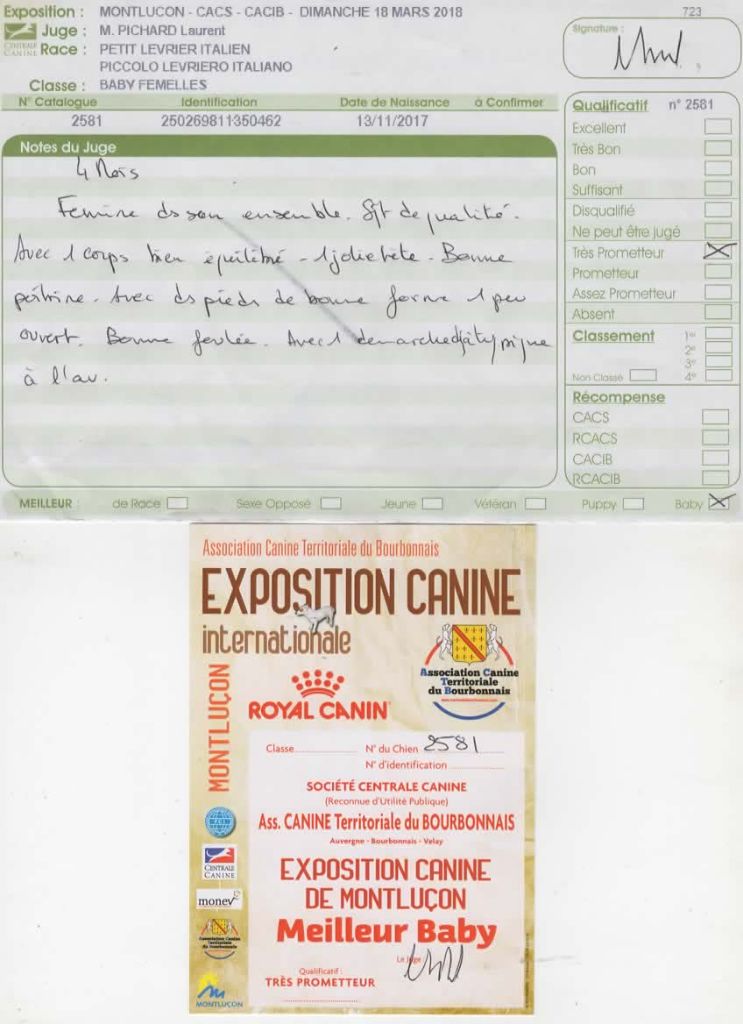 Exposition : MONTLUCON - CACS - CACIB - DIMANCHE 18 MARS 2018
723
Juge : M. PICHARD Laurent
Signature :
CENTRALE CANINE
Race : PETIT LEVRIER ITALIEN
PICCOLO LEVRIERO ITALIANO
Classe : BABY FEMELLES
N° Catalogue Identification Date de Naissance à Confirmer
2581 250269811350462 13/11/2017
Notes du Juge
4 Mois
Femine ds son ensemble. Sft de qualité.
Avec 1 corps bien équilibré - 1 jolie tête - Bonne
poitrine. Avec ds pieds de bonne forme 1 peu
ouvert. Bonne foulée. Avec 1 demarche
à l'av.
Qualificatif n° 2581
Excellent
Très Bon
Bon
Suffisant
Disqualifié
Ne peut être jugé
Très Prometteur
Prometteur
Assez Prometteur
Absent
Classement 1°
2°
3°
Non Classé 4°
Récompense
CACS
RCACS
CACIB
RCACIB
MEILLEUR : de Race Sexe Opposé Jeune Vétéran Puppy Baby
Association Canine Territoriale du Bourbonnais
EXPOSITION CANINE
internationale
MONTLUÇON
Association Canine
Territoriale
du Bourbonnais
ROYAL CANIN
Classe N° du Chien 2581
N° d'identification
SOCIÉTÉ CENTRALE CANINE
(Reconnue d'Utilité Publique)
Ass. CANINE Territoriale du BOURBONNAIS
Auvergne - Bourbonnais - Velay
EXPOSITION CANINE
DE MONTLUÇON
Meilleur Baby
Le Juge
Qualificatif :
TRÈS PROMETTEUR
FCI
CENTRALE
CANINE
Association Canine
Territoriale
du Bourbonnais
MONTLUÇON